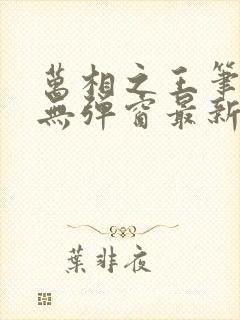 萬相之王筆
無彈窗最新
葉非夜